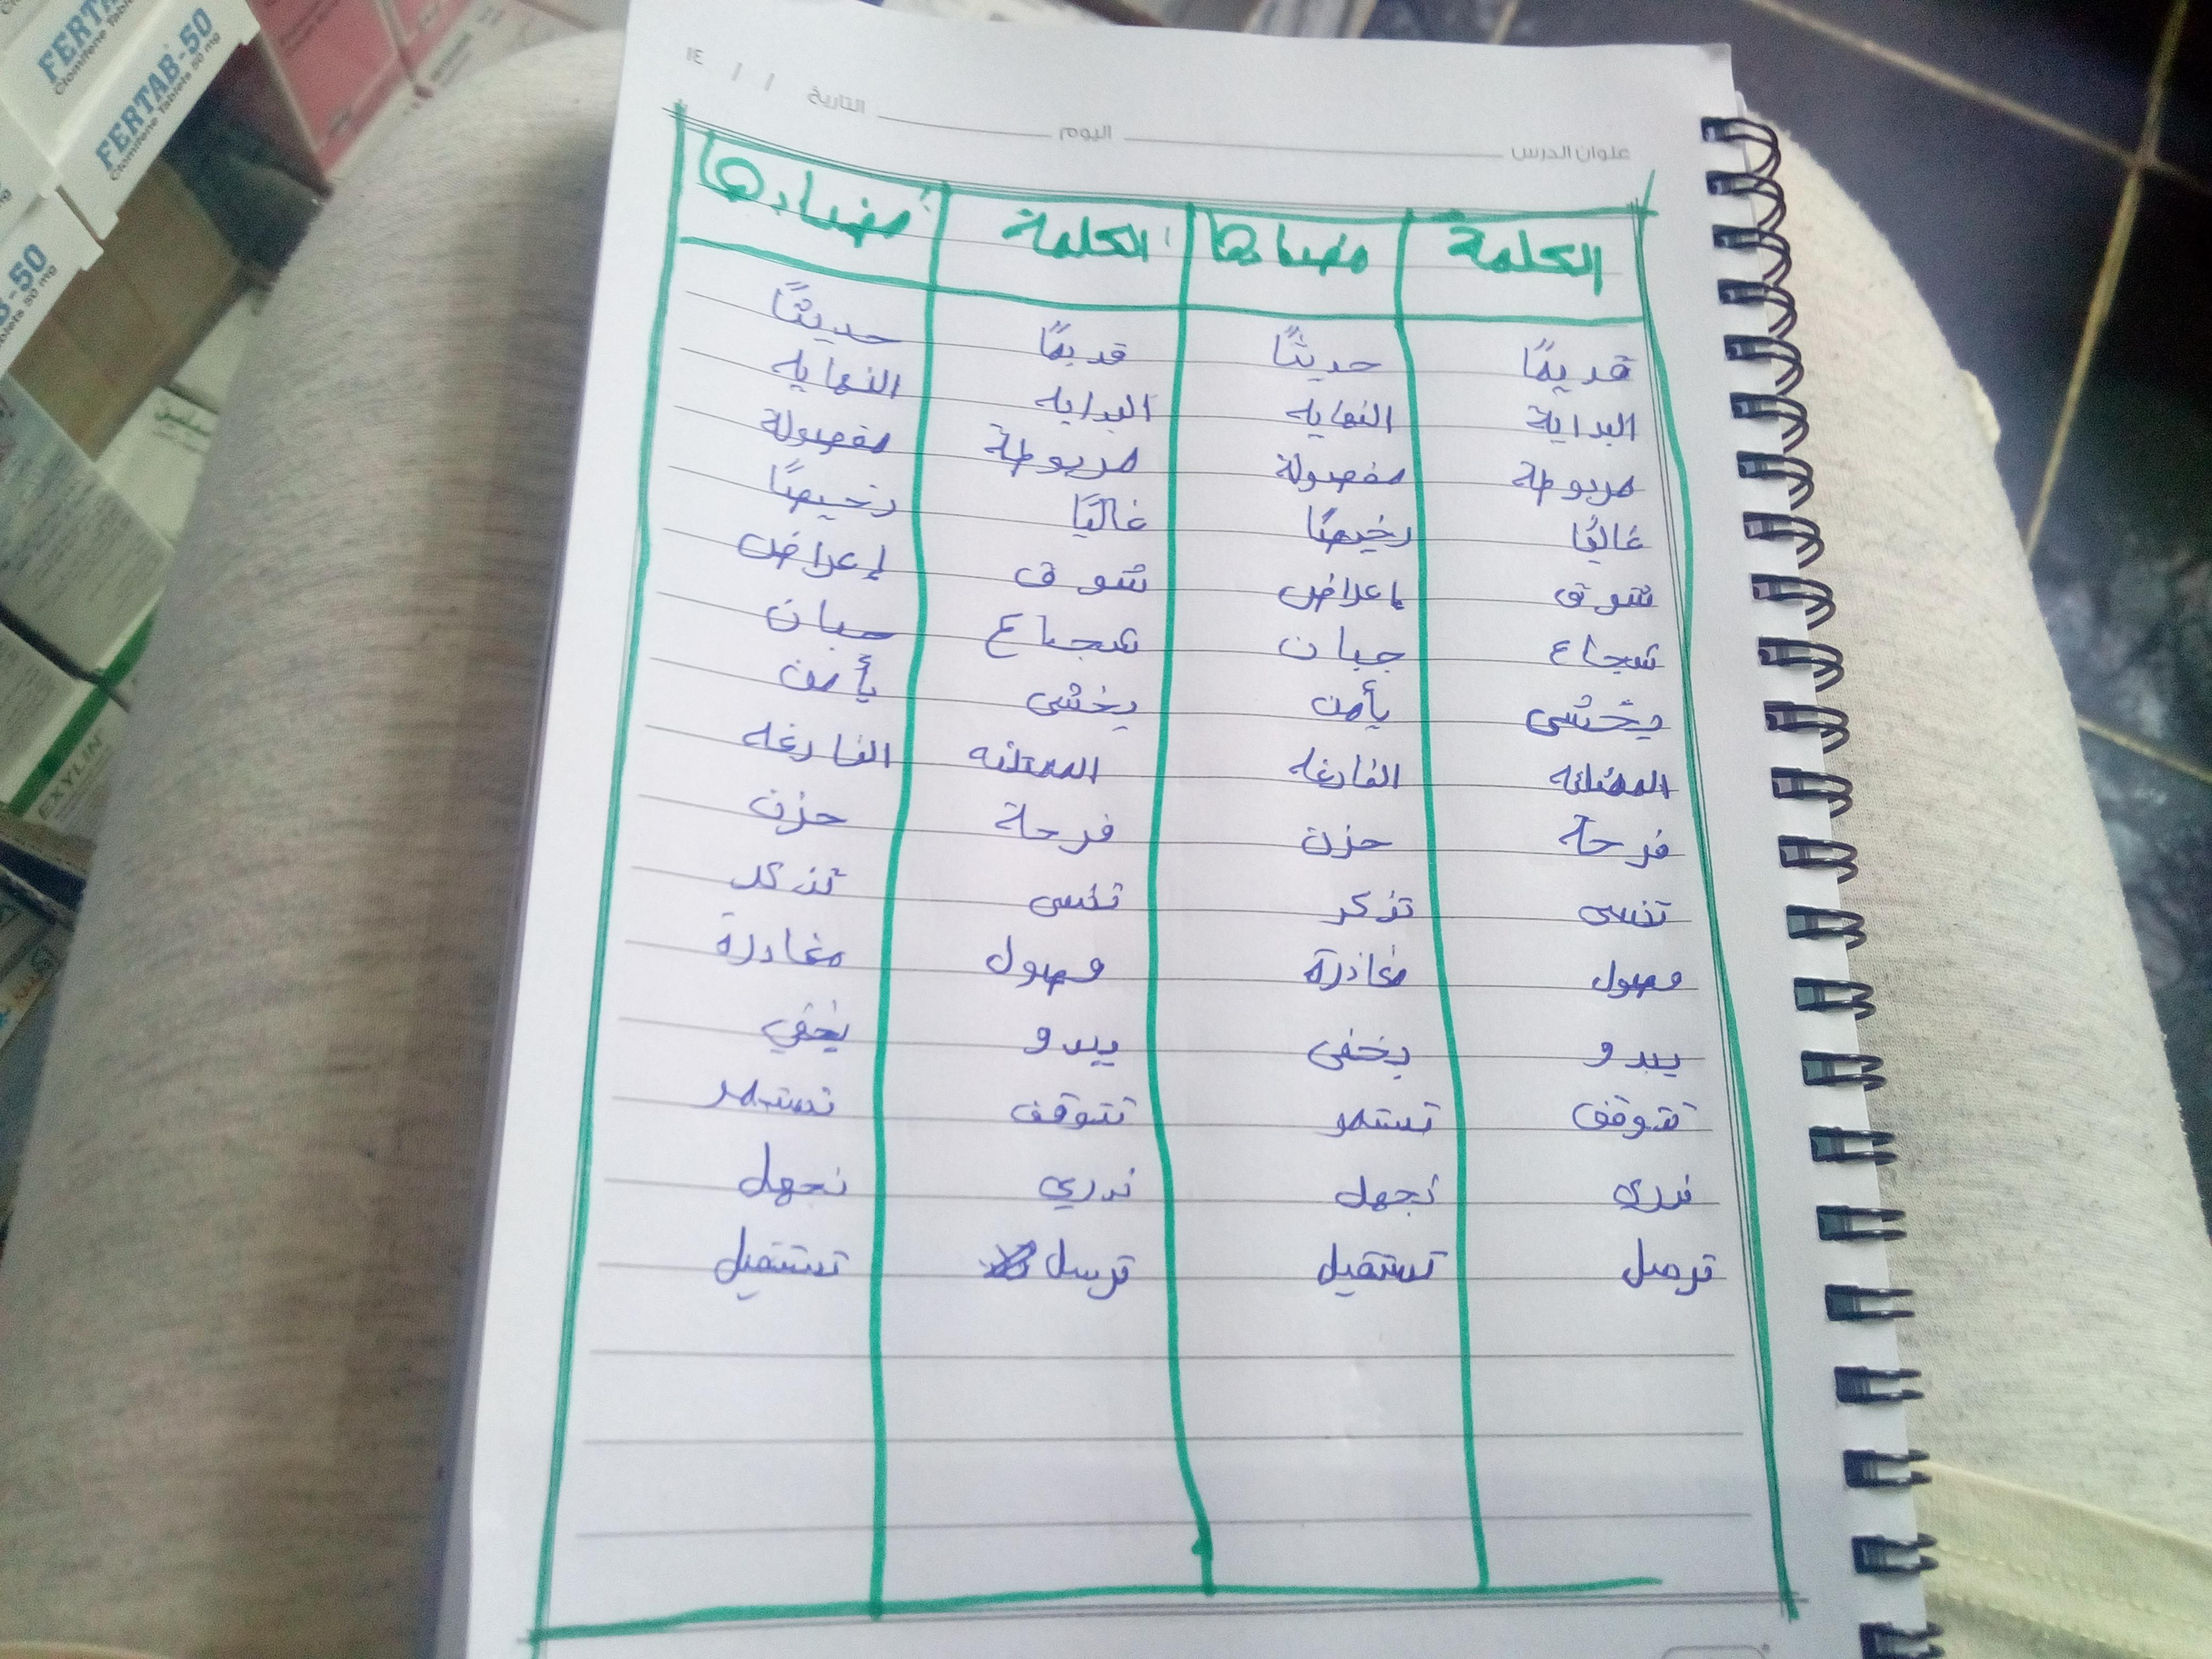 عنوان الدرس اليوم التاريخ / / ١٤
الكلمة مضادها الكلمة مضادها
قديمًا حديثًا قديمًا حديثًا
البداية النهايه البدايه النهايه
مربوطة مفصولة مربوطة مفصولة
غاليًا رخيصًا غاليًا رخيصًا
شوق إعراض شوق إعراض
شجاع جبان شجاع جبان
يخشى يأمن يخشى يأمن
الممتلئه الفارغه الممتلئه الفارغه
فرحة حزن فرحة حزن
تنسى تذكر تنسى تذكر
وصول مغادرة وصول مغادرة
يبدو يخفى يبدو يخفي
تتوقف تستمر تتوقف تستمر
ندري نجهل ندري نجهل
ترسل تستقبل ترسل تستقبل
FERTAB-50
Clomifene Tablets 50 mg
FERTAB-50
Clomifene Tablets 50 mg
B-50
blets 50 mg
EXYLIN